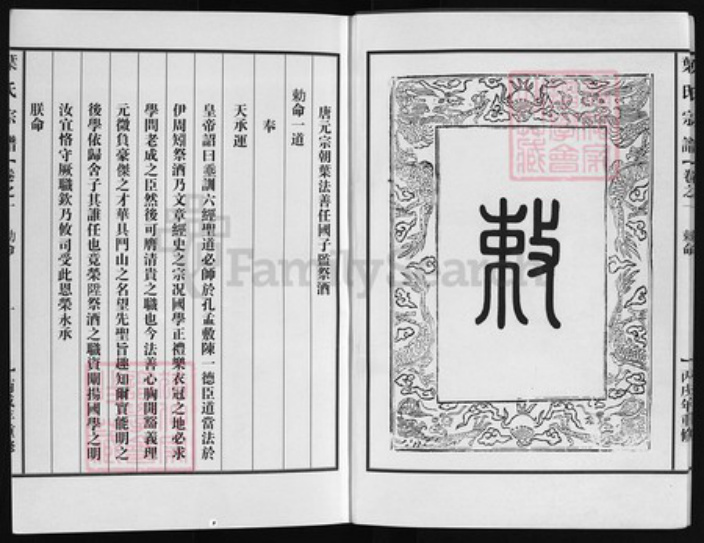 葉氏宗譜
卷之一
勅命
丙戌年重修
敕
唐元宗朝葉法善任國子監祭酒
勅命一道
奉
天承運
皇帝詔曰垂訓六經聖道必師於孔孟敷陳一德臣道當法於
伊周矧祭酒乃文章經史之宗况國學正禮樂衣冠之地必求
學問老成之臣然後可膺清貴之職也今法善心胸開豁義理
元微負豪傑之才華具鬥山之名望先聖旨趣知爾實能明之
後學依歸舍子其誰任也竟榮陞祭酒之職資闡揚國學之明
汝宜恪守厥職欽乃攸司受此恩榮永承
朕命
葉氏宗譜
卷之一
勅命
一
丙戌年重修
FamilySearch